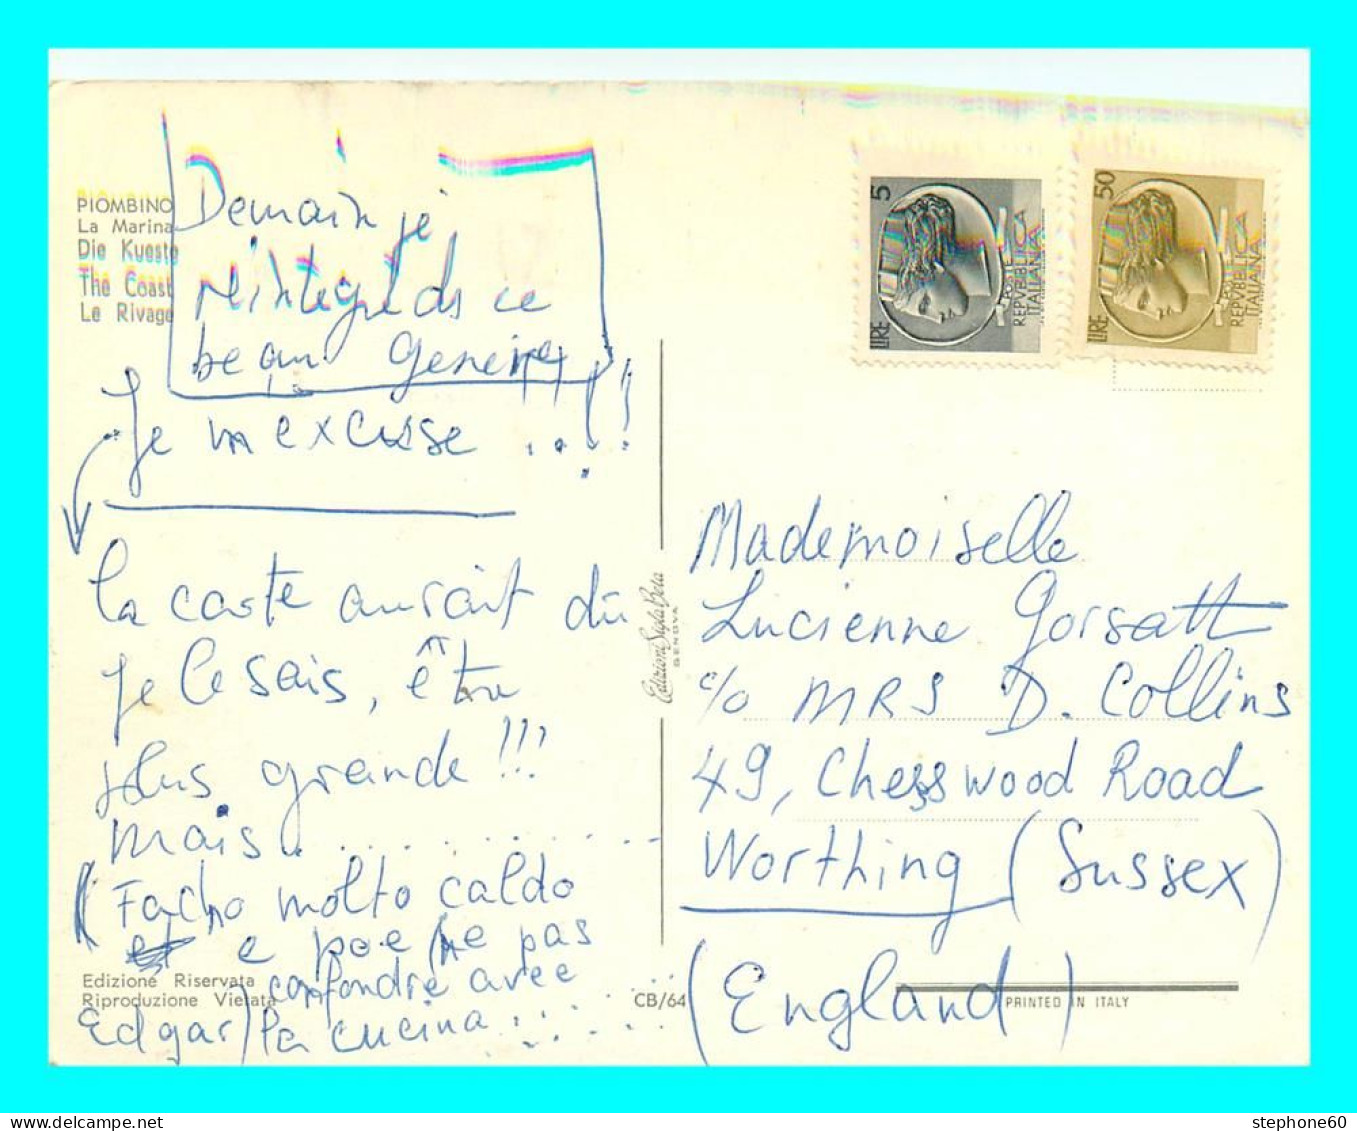 PIOMBINO
La Marina
Die Kueste
The Coast
Le Rivage
Demain je
réintègre ds ce
beau Genève!!!!
Je m'excuse ...!!
la carte aurait dû
je le sais, être
plus grande!!!
mais. . . . . . . . .
(Facho molto caldo
e poe (ne pas
confondre avec
Edgar) la cucina ......
Edizione Riservata
Riproduzione Vietata
CB/64
Edizioni Sigla Beta
GENOVA
5
LIRE
POSTE
REPVBBLICA
ITALIANA
50
LIRE
POSTE
REPVBBLICA
ITALIANA
Mademoiselle
Lucienne Gorsatt
c/o MRS D. Collins
49, Chesswood Road
Worthing (Sussex)
(England)
PRINTED IN ITALY
stephone60